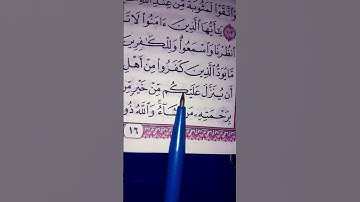 وَاتَّقَوْا لَمَثُوبَةٌ مِّنْ عِندِ اللَّهِ
١٠٣ يَا أَيُّهَا الَّذِينَ ءَامَنُوا لَا تَ
انظُرْنَا وَاسْمَعُوا وَلِلْكَافِرِينَ
مَّا يَوَدُّ الَّذِينَ كَفَرُوا مِنْ أَهْلِ
أَن يُنَزَّلَ عَلَيْكُم مِّنْ خَيْرٍ مِّن
بِرَحْمَتِهِ مَن يَشَاءُ وَاللَّهُ ذُو
١٦